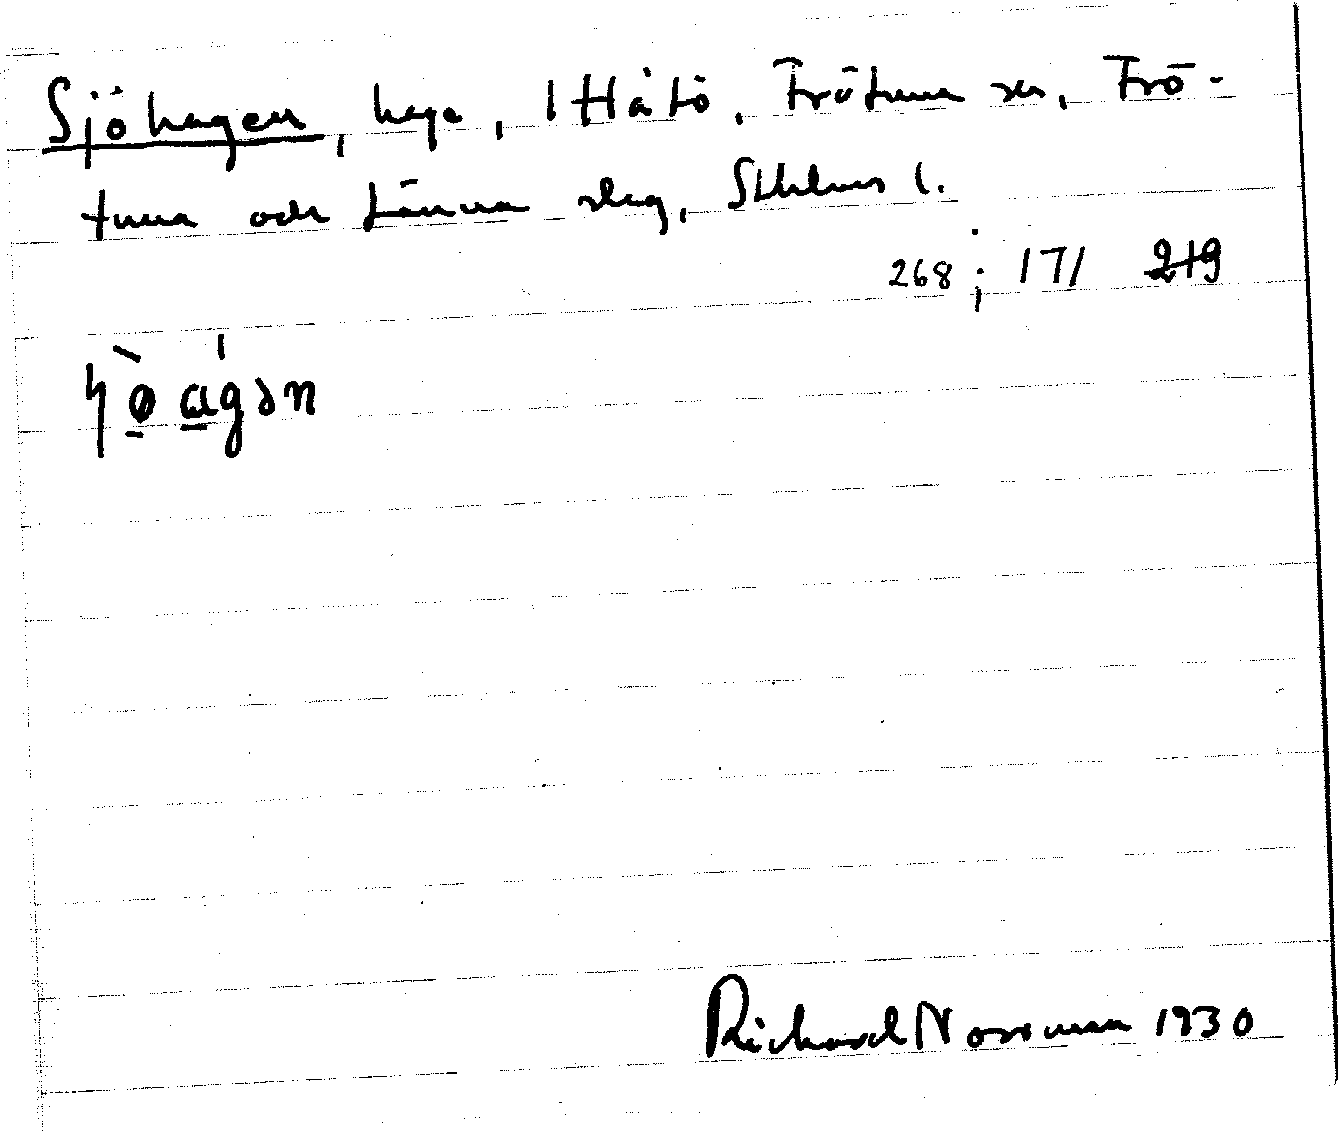 Sjöhagen, hage, 1 Håtö, Frötuna sn, Frö-
tuna och Länna slag, Sthlms l.
268; 171 219
Richard Norrman 1930